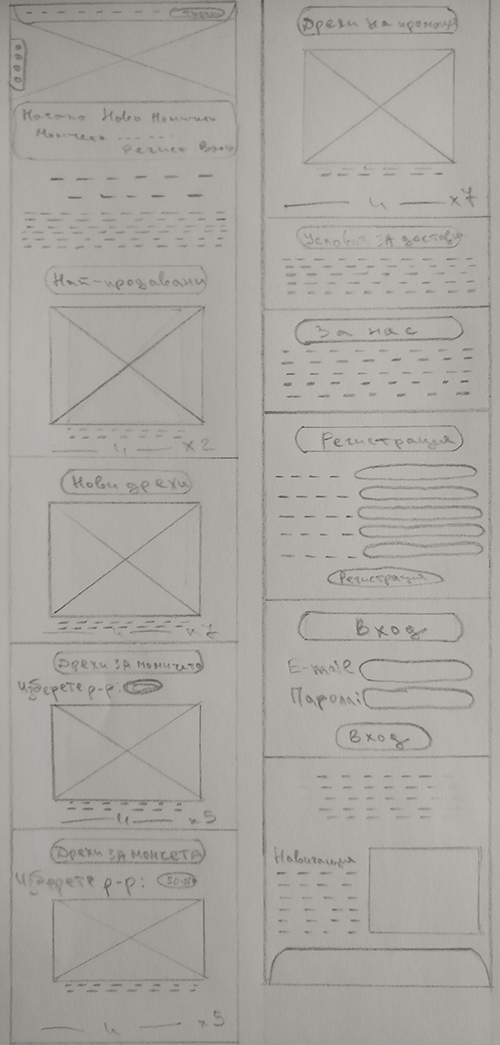 Търси
Начало Ново Момичета
Момчета
Регист Вход
Най-продавани
— 11 — x2
Нови дрехи
— 11 — x7
Дрехи за момичета
Изберете р-р:
— 11 — x5
Дрехи за момчета
Изберете р-р:
— 11 — x5
Дрехи на промоция
— 11 — x7
Условия за доставка
За нас
Регистрация
Регистрация
Вход
E-male
Парола:
Вход
Навигация